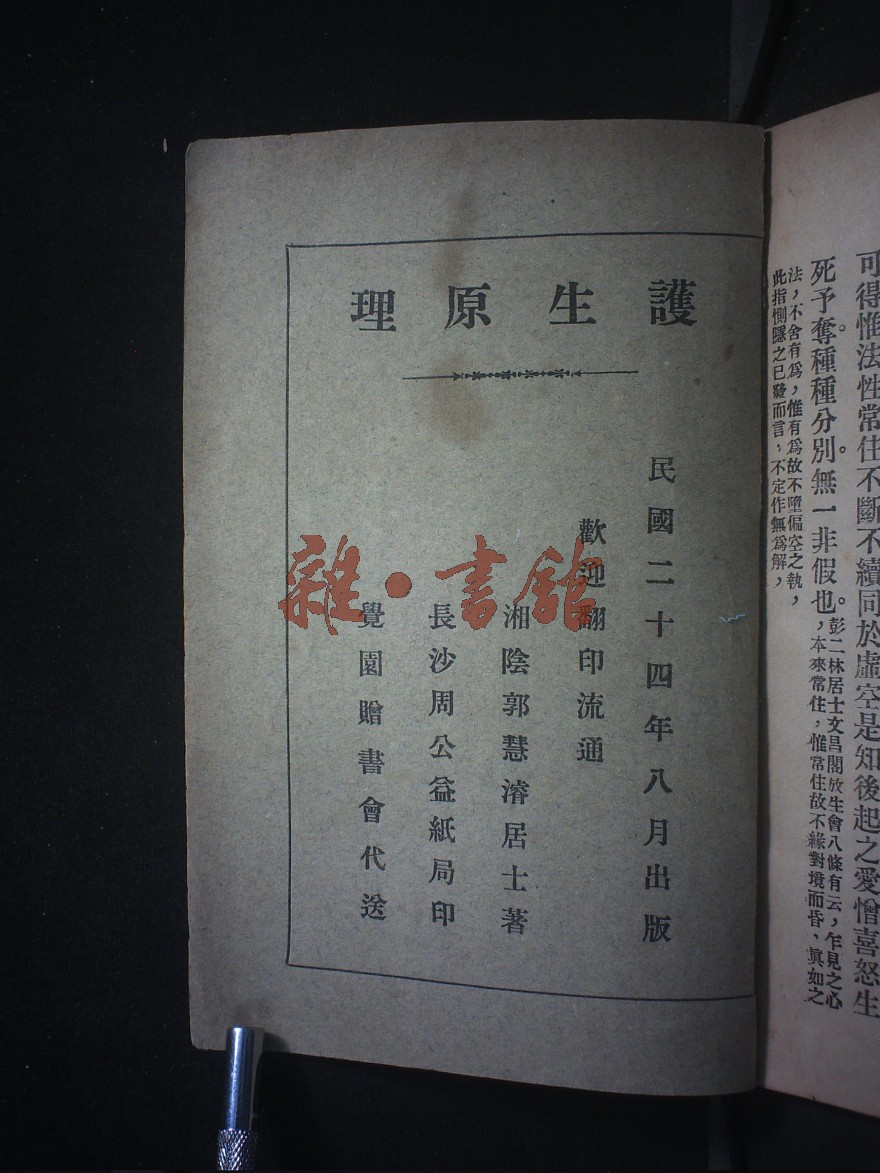 可得惟法性常住不斷不續同於虛空是知後起之愛憎喜怒生
死予奪種種分別無一非假也。彭二林居士文昌閣放生會八條有云，乍見之心
，本來常住，惟常住故不緣對境而昏，眞如之
法，不舍有爲，惟有爲故不墮偏空之執，
此指惻隱之已發而言，不定作無爲解，
護生原理
民國二十四年八月出版
歡迎翻印流通
湘陰郭慧濬居士著
長沙周公益紙局印
覺園贈書會代送
雜·書館